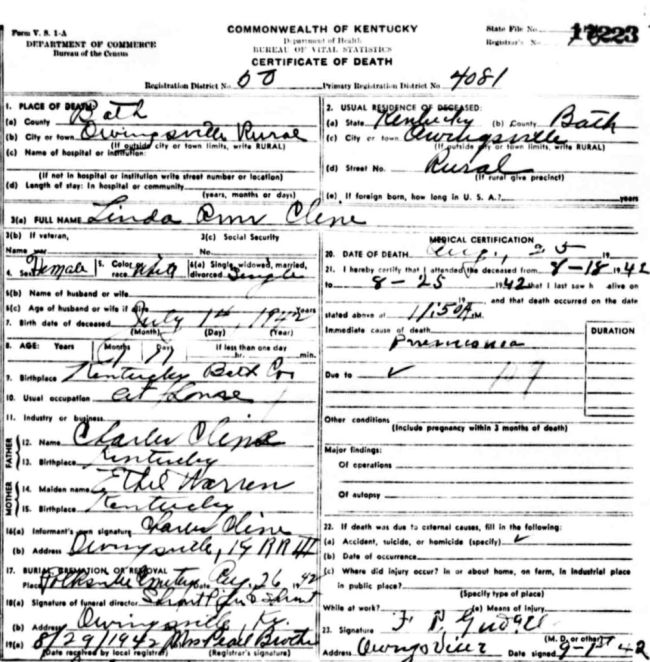 Form V. S. 1-A
DEPARTMENT OF COMMERCE
Bureau of the Census
COMMONWEALTH OF KENTUCKY
Department of Health
BUREAU OF VITAL STATISTICS
CERTIFICATE OF DEATH
State File No. 17223
Registrar's No.
Registration District No. 50 Primary Registration District No. 4081
1. PLACE OF DEATH
(a) County Bath
(b) City or town Owingsville Rural
(If outside city or town limits, write RURAL)
(c) Name of hospital or institution:
(If not in hospital or institution write street number or location)
(d) Length of stay: In hospital or community
(years, months or days)
2. USUAL RESIDENCE OF DECEASED:
(a) State Kentucky (b) County Bath
(c) City or town Owingsville
(If outside city or town limits, write RURAL)
(d) Street No. Rural
(If rural give precinct)
(e) If foreign born, how long in U. S. A.? years
3(a) FULL NAME Linda Ann Cline
3(b) If veteran, 3(c) Social Security
Name war No.
4. Sex Female 5. Color or race White 6(a) Single, widowed, married, divorced Single
6(b) Name of husband or wife
6(c) Age of husband or wife if alive years
7. Birth date of deceased July 1st, 1942
(Month) (Day) (Year)
8. AGE: Years Months Days If less than one day
hr. min.
9. Birthplace Kentucky Bath Co
10. Usual occupation at
11. Industry or business
FATHER
12. Name Charles Cline
13. Birthplace Kentucky
MOTHER
14. Maiden name Ethel Warren
15. Birthplace Kentucky
16(a) Informant's own signature Charles Cline
(b) Address Owingsville, Ky RR
17. BURIAL, CREMATION, OR REMOVAL
Place Date Aug, 26, 1942
18(a) Signature of funeral director
(b) Address Owingsville, Ky.
19. (a) 8/29/1942 Mrs Pearl
(Date received by local registrar) (Registrar's signature)
MEDICAL CERTIFICATION
20. DATE OF DEATH Aug, 25 19
21. I hereby certify that I attended the deceased from 8-18 1942
to 8-25 1942 that I last saw h alive on
19 and that death occurred on the date
stated above at 11:50 A M.
Immediate cause of death DURATION
Pneumonia
Due to ✓ 107
Other conditions
(Include pregnancy within 3 months of death)
Major findings:
Of operations
Of autopsy
22. If death was due to external causes, fill in the following:
(a) Accident, suicide, or homicide (specify) ✓
(b) Date of occurrence
(c) Where did injury occur? in or about home, on farm, in industrial place
in public place?
(Specify type of place)
While at work? (e) Means of injury
23. Signature F P Gudgell
(M. D. or other)
Address Owingsville Date signed 9-1st 42